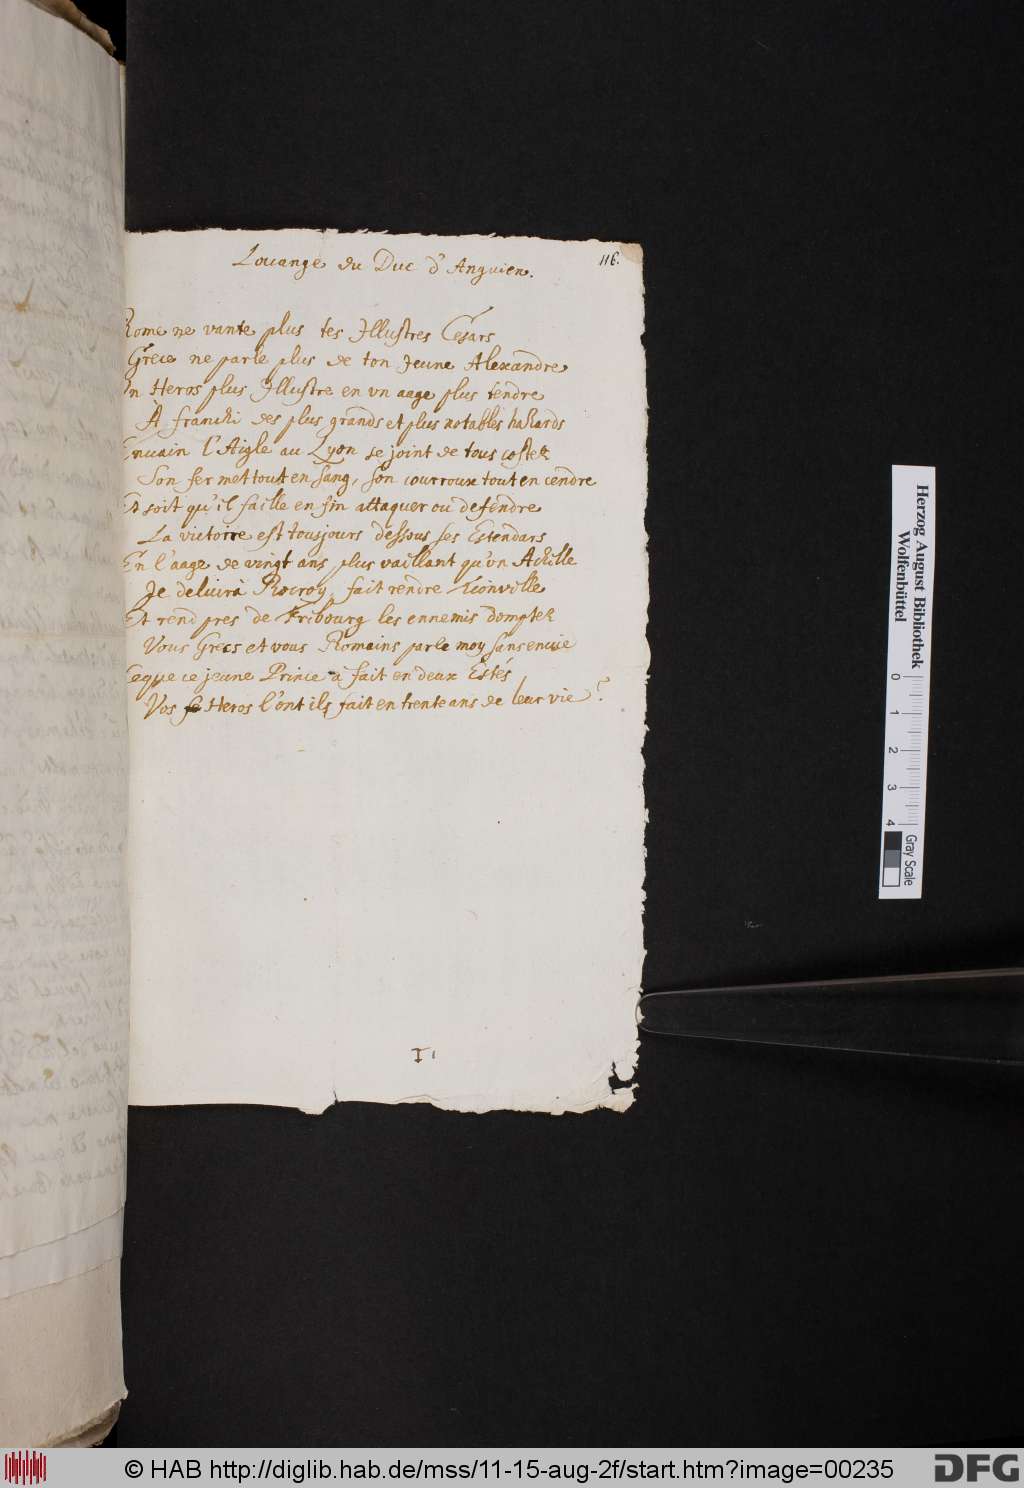 116.
Louange du Duc d'Anguien.
Rome ne vante plus tes Illustres Cesars
Grece ne parle plus de ton Jeune Alexandre
Un Heros plus Illustre en vn aage plus tendre
À franchi des plus grands et plus notables hazards
Envain l'Aigle au Lyon se joint de tous costez
Son fer met tout en sang, son courroux tout en cendre
Et soit qu'il faille en fin attaquer ou defendre
La victoire est tousjours dessous ses Estendars
En l'aage de vingt ans plus vaillant qu'vn Achille
Je Rocroy, fait rendre
Et rend pres de Fribourg les ennemis domptez
Vous Grecs et vous Romains parle moy sans envie
Ceque ce jeune Prince à fait en deux Estés
Vos Heros l'ont ils fait en trente ans de leur vie?
Herzog August Bibliothek
Wolfenbüttel
0 1 2 3 4
Gray Scale
© HAB http://diglib.hab.de/mss/11-15-aug-2f/start.htm?image=00235
DFG